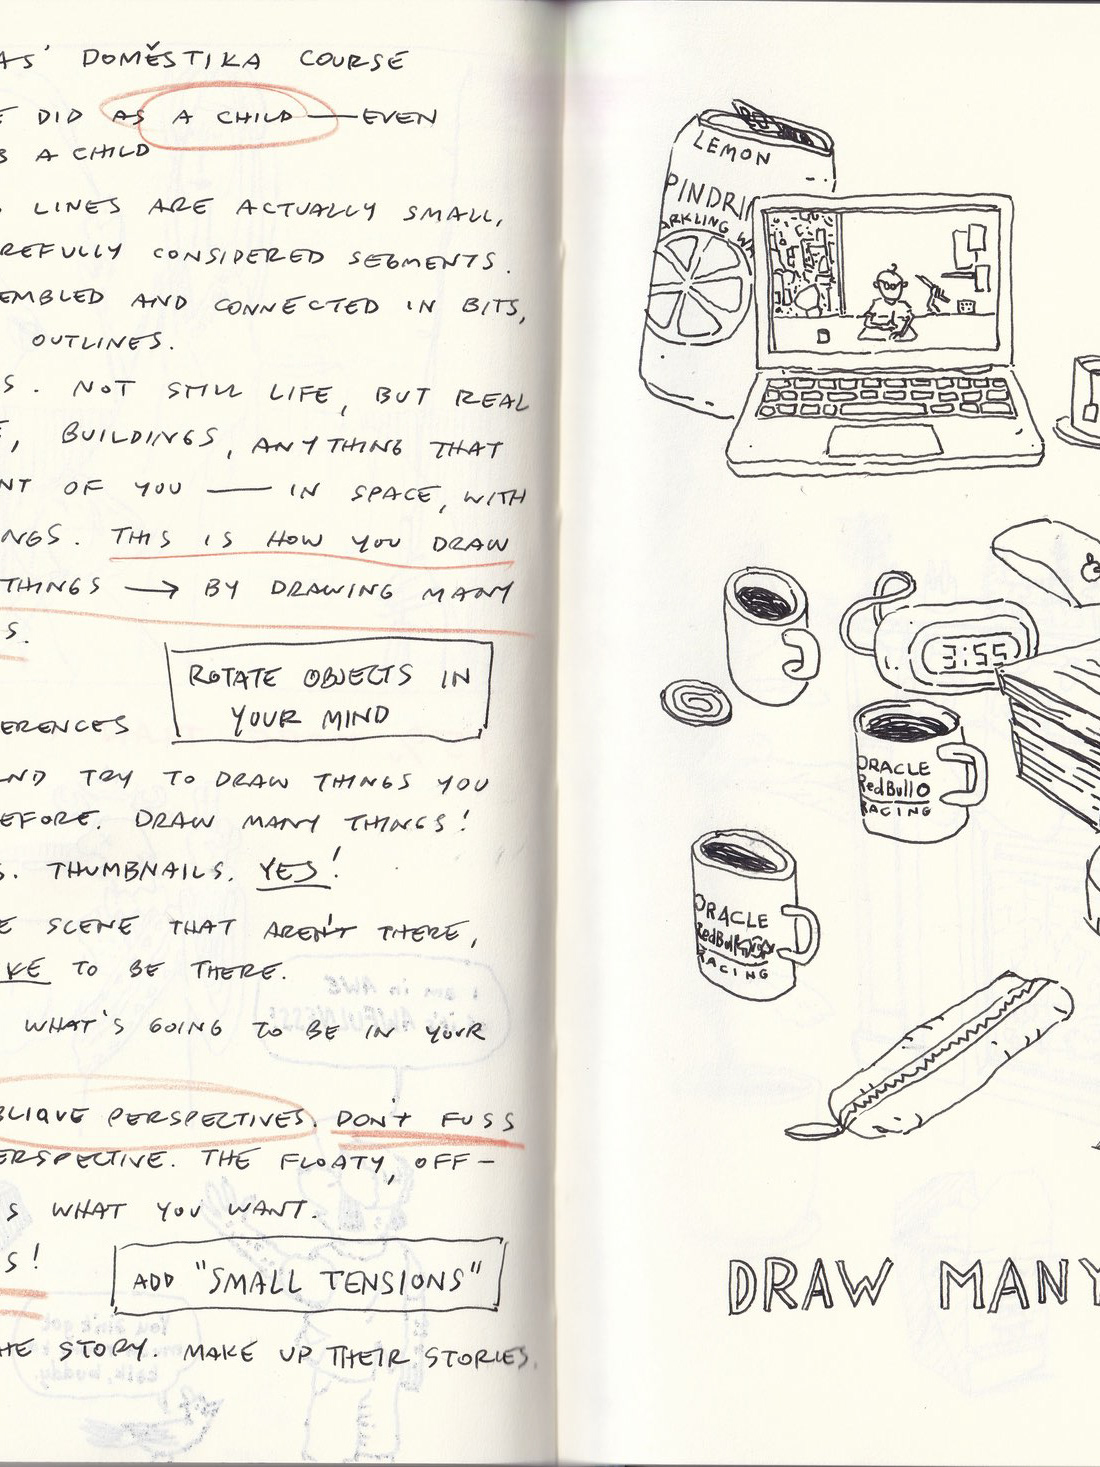 AS' DOMĚSTIKA COURSE
E DID AS A CHILD — EVEN
S A CHILD
S LINES ARE ACTUALLY SMALL,
REFULLY CONSIDERED SEGMENTS.
EMBLED AND CONNECTED IN BITS,
OUTLINES.
S. NOT STILL LIFE, BUT REAL
E, BUILDINGS, ANYTHING THAT
NT OF YOU — IN SPACE, WITH
NGS. THIS IS HOW YOU DRAW
THINGS → BY DRAWING MANY
S.
ROTATE OBJECTS IN
YOUR MIND
ERENCES
ND TRY TO DRAW THINGS YOU
EFORE. DRAW MANY THINGS!
S. THUMBNAILS. YES!
E SCENE THAT AREN'T THERE,
KE TO BE THERE.
WHAT'S GOING TO BE IN YOUR
BLIQUE PERSPECTIVES. DON'T FUSS
ERSPECTIVE. THE FLOATY, OFF-
S WHAT YOU WANT.
S!
ADD "SMALL TENSIONS"
HE STORY. MAKE UP THEIR STORIES.
LEMON
PINDRI
ARKLING W
3:55
ORACLE
RedBull
RACING
ORACLE
RedBull
RACING
DRAW MANY